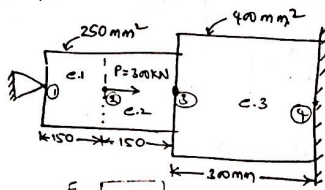 250mm²
400mm²
e.1
P=300KN
①
②
e.2
③
e.3
④
150
150
300mm